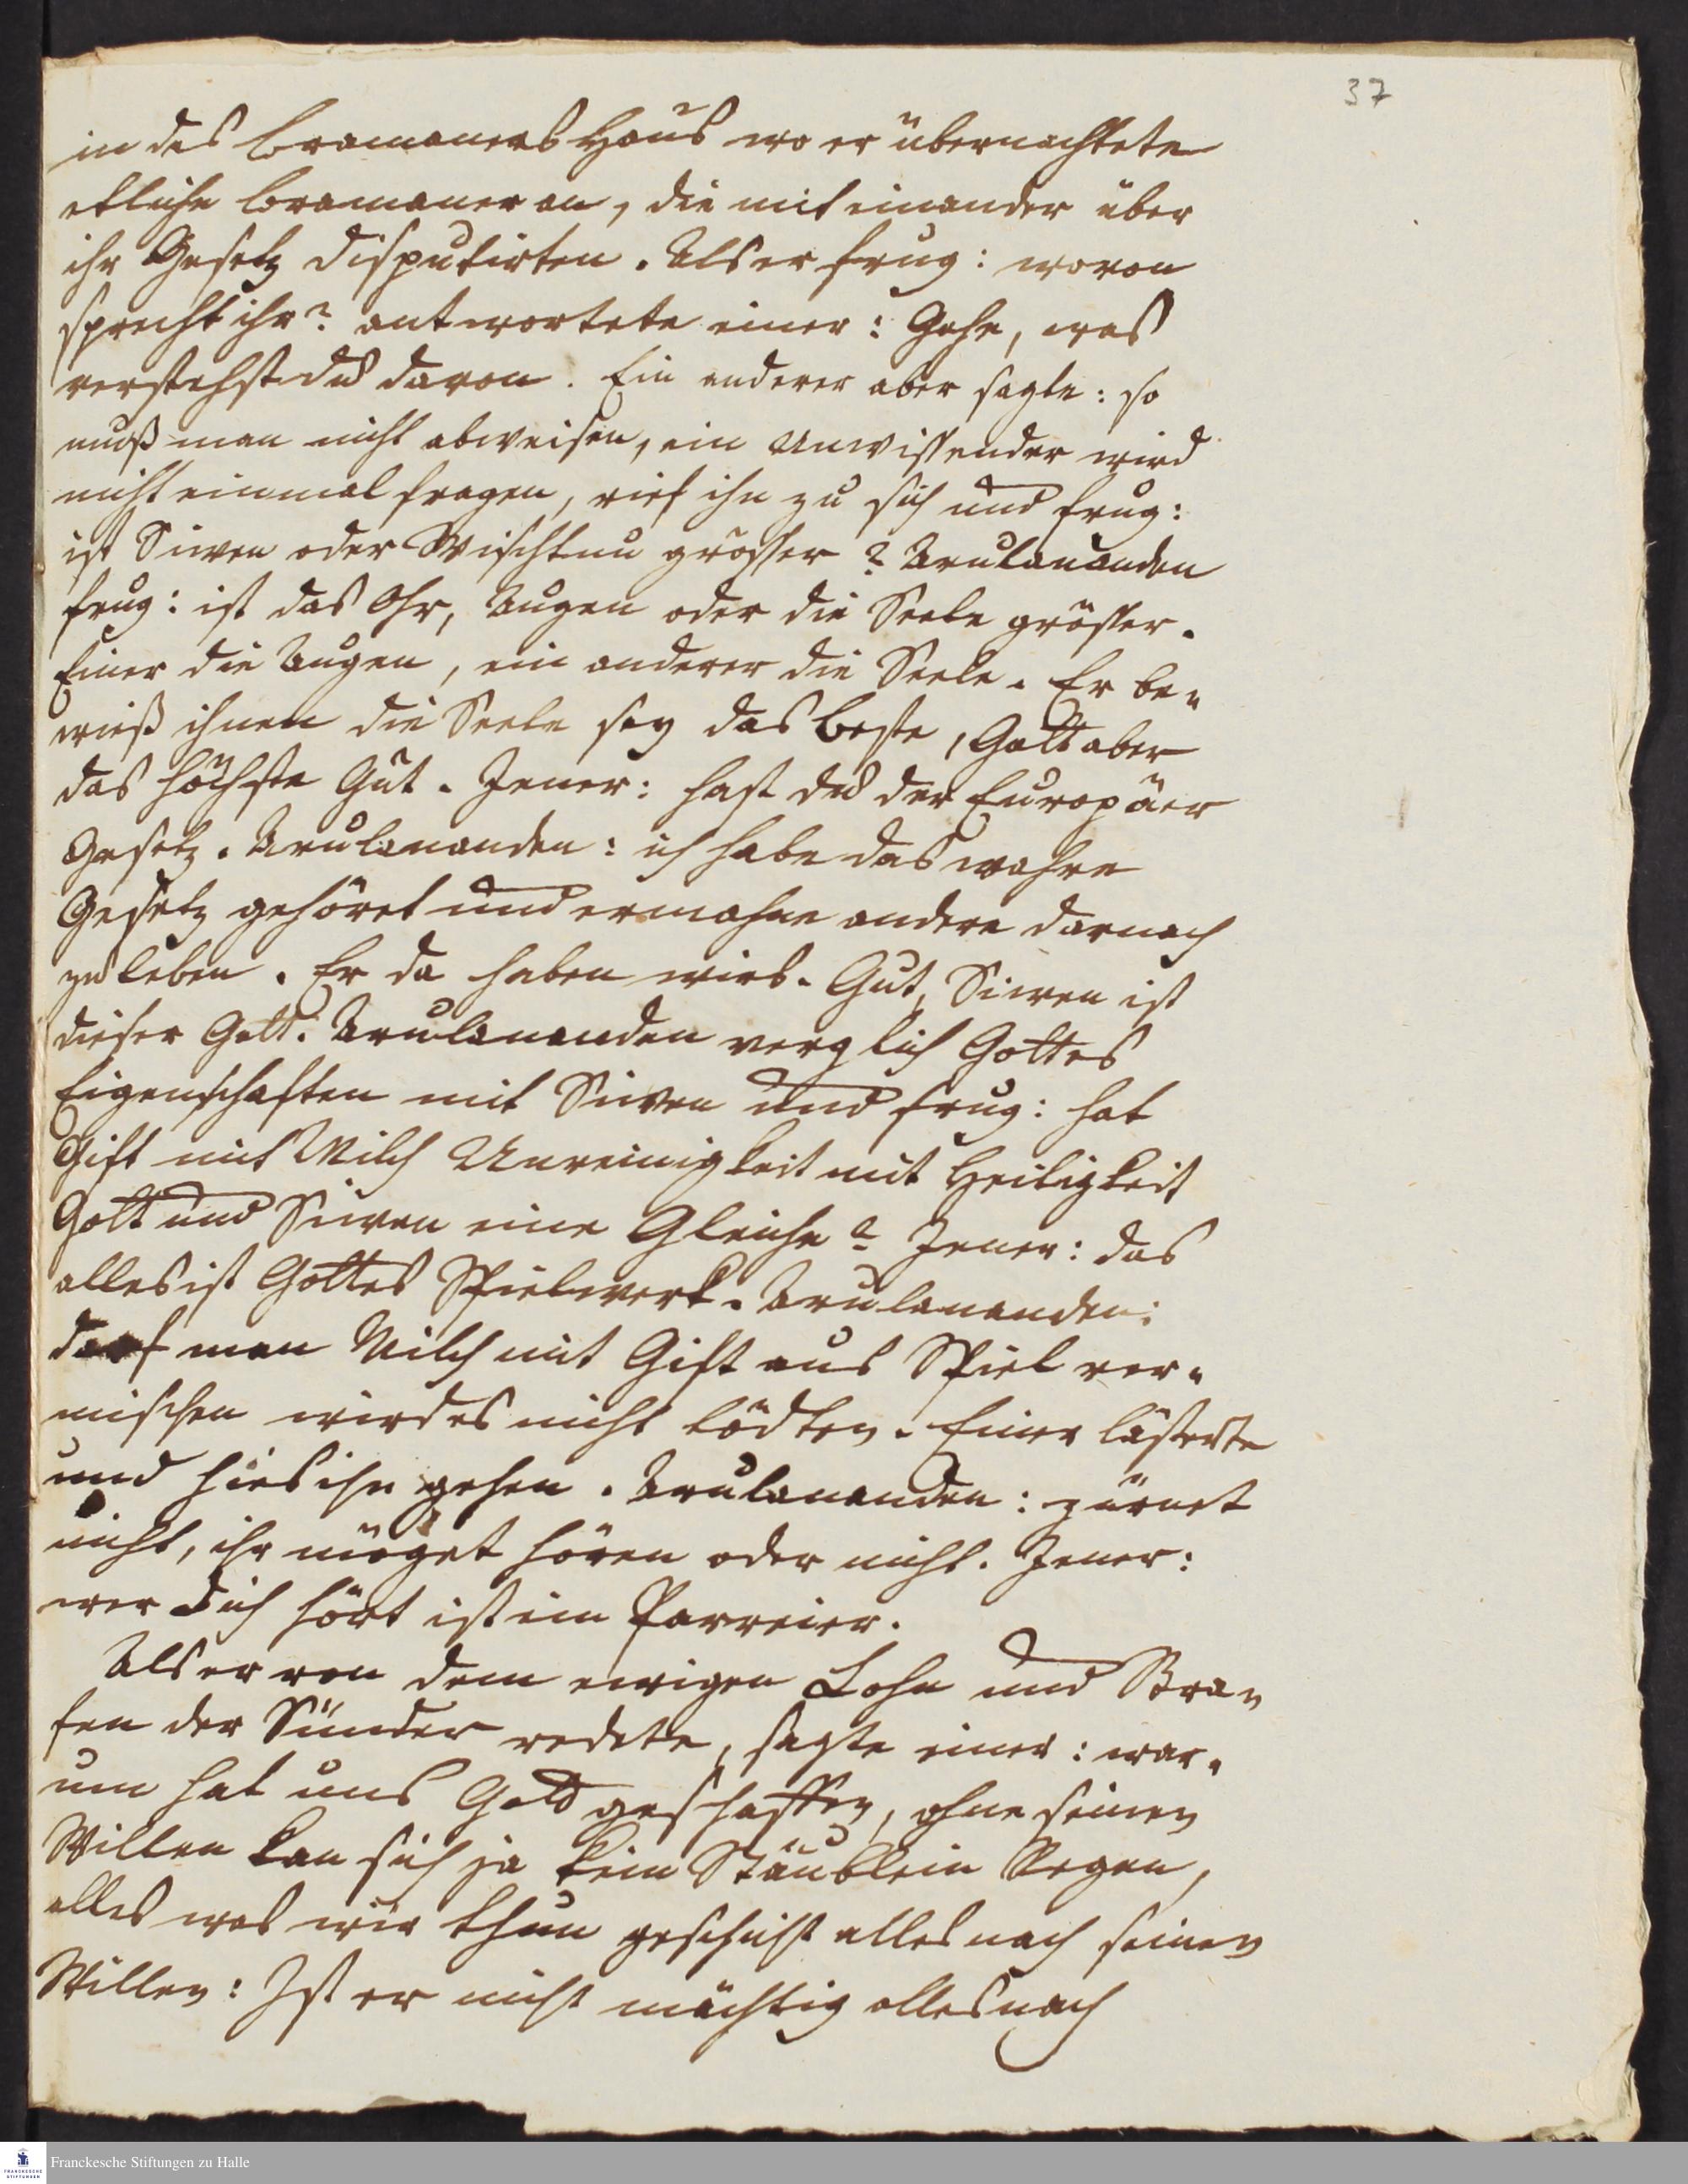 37
in des Bramaners Haus wo er übernachtete
etliche Bramaner an, die mit einander über
ihr Gesetz disputirten. Als er frug: wovon
sprecht ihr? antwortete einer: Gehe, was
verstehst du davon. Ein anderer aber sagte: so
muß man nicht abweisen, ein Unwissender wird
nicht einmal fragen, rief ihn zu sich und frug:
ist Siwen oder Wischtnu grösser? Arulananden
frug: ist das Ohr, Augen oder die Seele grösser.
Einer die Augen, ein anderer die Seele. Er be„
wieß ihnen die Seele sey das beste, Gott aber
das höchste Gut. Jener: hast du der Europäer
Gesetz. Arulananden: ich habe das wahre
Gesetz gehöret und ermahne andere darnach
zu leben. Er da haben wirs. Gut, Siwen ist
dieser Gott. Arulananden verglich Gottes
Eigenschaften mit Siwen und frug: hat
Gift mit Milch Unreinigkeit mit Heiligkeit
Gott und Siwen eine Gleiche? Jener: das
alles ist Gottes Spielwerk. Arulananden:
darf man Milch mit Gift aus Spiel ver„
mischen wird es nicht tödten. Einer lästerte
und hies ihn gehen. Arulananden: zürnet
nicht, ihr möget hören oder nicht. Jener:
wer dich hört ist ein Parreier.
Als er von dem ewigen Lohn und Stra„
fen der Sünder redete, sagte einer: war„
um hat uns Gott geschaffen, ohne seinen
Willen kan sich ja kein Stäublein Regen,
alles was wir thun geschicht alles nach seinen
Willen: Ist er nicht mächtig alles nach
Franckesche Stiftungen zu Halle
FRANCKESCHE
STIFTUNGEN